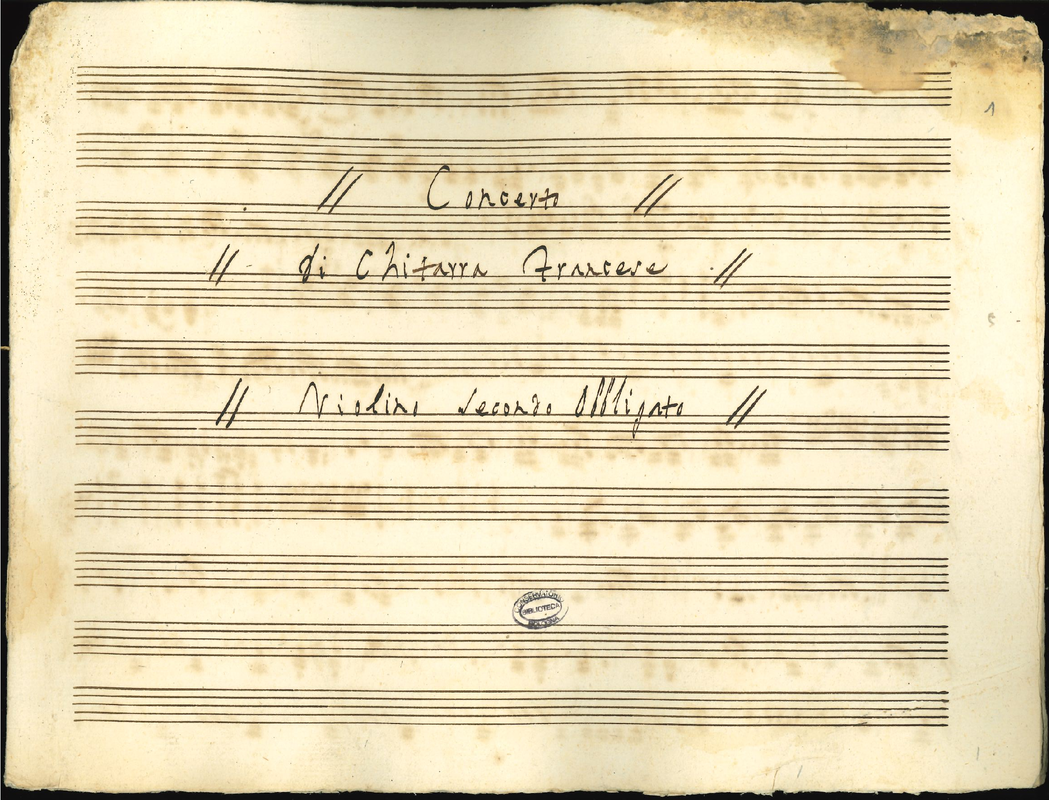 1
// Concerto //
// di Chitarra Francese //
5
// Violino secondo Obbligato //
CONSERVATORIO
BIBLIOTECA
BOLOGNA